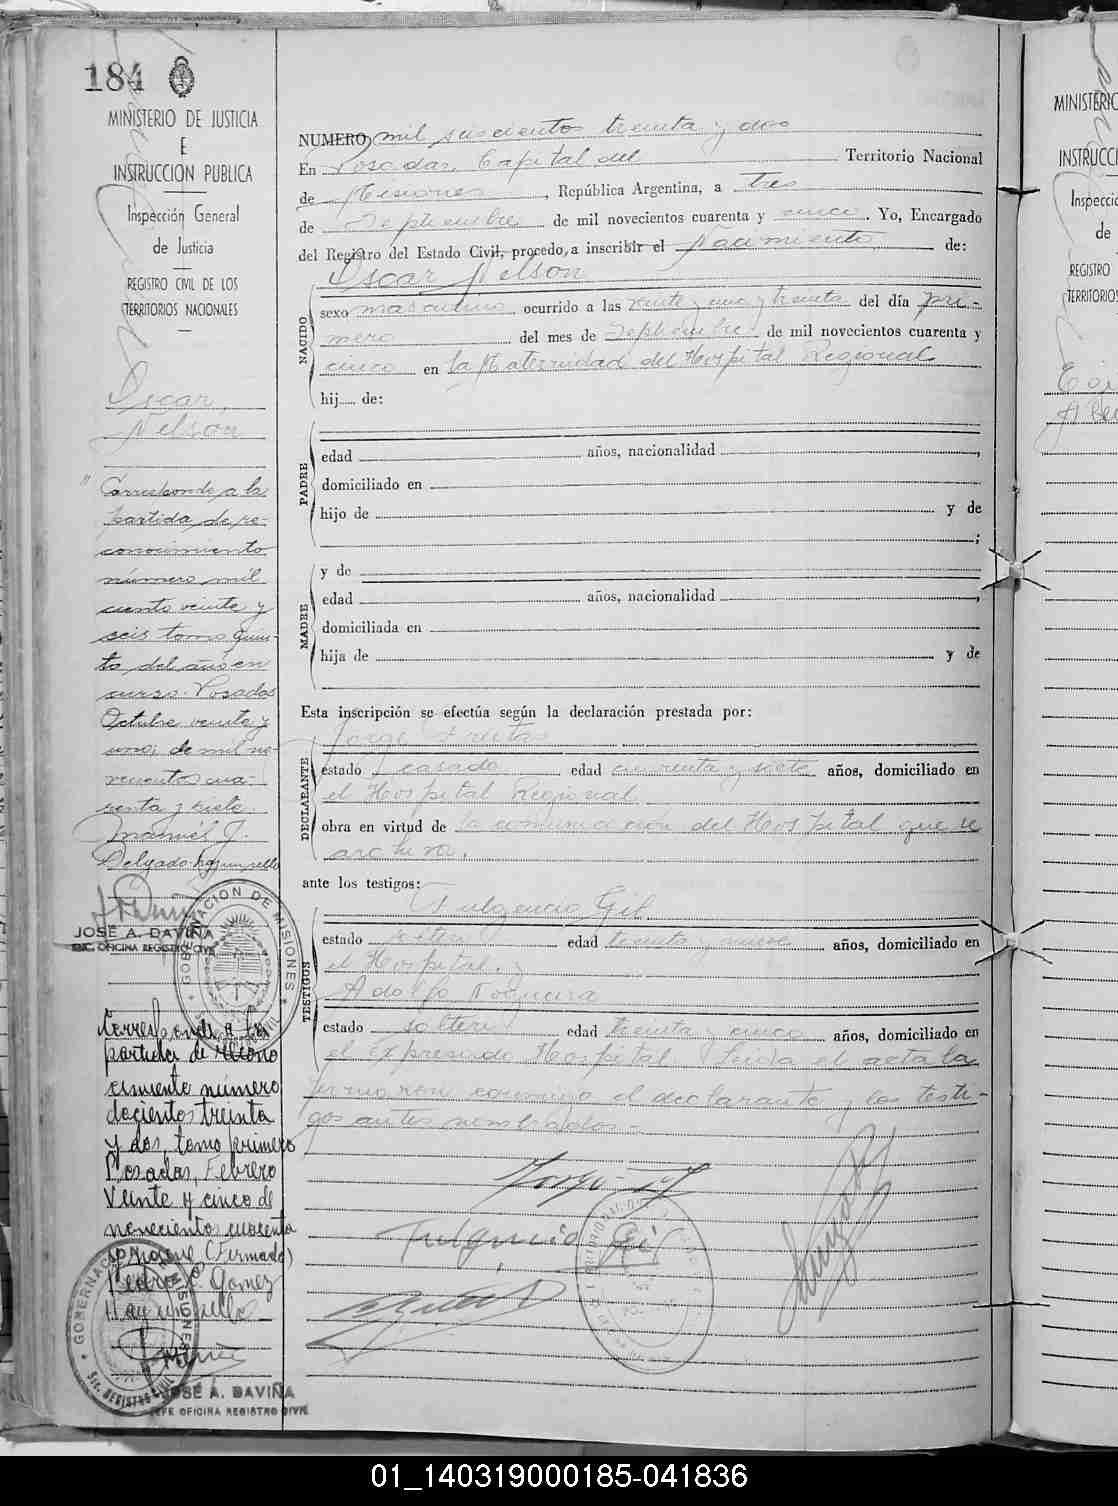 184
MINISTERIO DE JUSTICIA
E
INSTRUCCION PUBLICA
Inspección General
de Justicia
REGISTRO CIVIL DE LOS
TERRITORIOS NACIONALES
Oscar
Nelson
"Corresponde a la
partida de re-
conocimiento
número mil
ciento veinte y
seis tomo quin-
to del año en
curso. Posadas
Octubre veinte y
uno: de mil no-
vecientos cua-
renta y siete.
Manuel J.
Delgado. hay un sello
JOSÉ A. DAVIÑA
ENC. OFICINA REGISTRO CIVIL
GOBERNACION DE MISIONES
Corresponde a la
partida de recono
cimiento número
docientos treinta
y dos, tomo primero
Posadas, Febrero
Veinte y cinco de
novecientos cuarenta
(Firmado)
Pedro Gomez
Hay un sello
GOBERNACION DE MISIONES
Sec. REGISTRO CIVIL
JOSÉ A. DAVIÑA
JEFE OFICINA REGISTRO CIVIL
NUMERO mil seiscientos treinta y dos
En Posadas, Capital del Territorio Nacional
de Misiones, República Argentina, a tres
de Septiembre de mil novecientos cuarenta y cinco. Yo, Encargado
del Registro del Estado Civil, procedo a inscribir el Nacimiento de:
Oscar Nelson
NACIDO
sexo masculino ocurrido a las veinte y una y treinta del día pri-
mero del mes de Septiembre de mil novecientos cuarenta y
cinco en la Maternidad del Hospital Regional
hij..... de:
PADRE
edad años, nacionalidad ,
domiciliado en
hijo de y de
;
MADRE
y de
edad años, nacionalidad ,
domiciliada en
hija de y de
Esta inscripción se efectúa según la declaración prestada por:
Jorge Freitas
DECLARANTE
estado casado edad cuarenta y siete años, domiciliado en
el Hospital Regional
obra en virtud de la comunicación del Hospital que se
archiva.
ante los testigos:
Fulgencio Gil
TESTIGOS
estado soltero edad treinta y nueve años, domiciliado en
el Hospital. y
Adolfo Nogueira
estado soltero edad treinta y cinco años, domiciliado en
el expresado Hospital. Leída el acta la
firmaron conmigo el declarante y los testi-
gos antes nombrados.-
Fulgencio Gil
MINISTERIO
INSTRUCCI
Inspecció
de
REGISTRO
TERRITORIOS
01_140319000185-041836